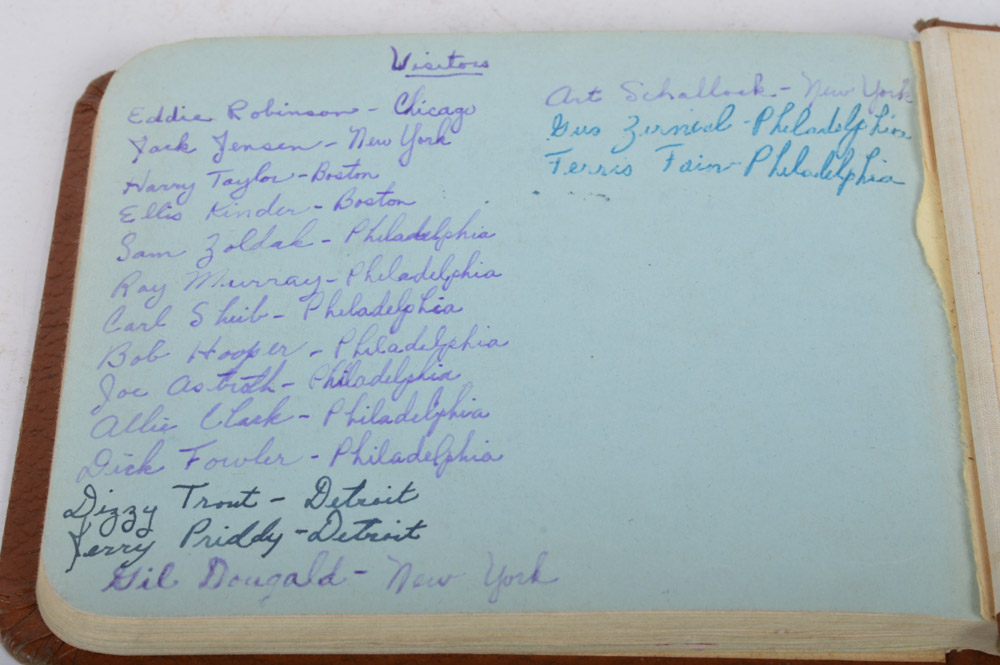 Visitors
Eddie Robinson - Chicago
Jack Jensen - New York
Harry Taylor - Boston
Ellis Kinder - Boston
Sam Zoldak - Philadelphia
Ray Murray - Philadelphia
Carl Sheib - Philadelphia
Bob Hooper - Philadelphia
Joe Astroth - Philadelphia
Allie Clark - Philadelphia
Dick Fowler - Philadelphia
Dizzy Trout - Detroit
Jerry Priddy - Detroit
Gil Dougald - New York
Art Schallock - New York
Gus Zernial - Philadelphia
Ferris Fain - Philadelphia